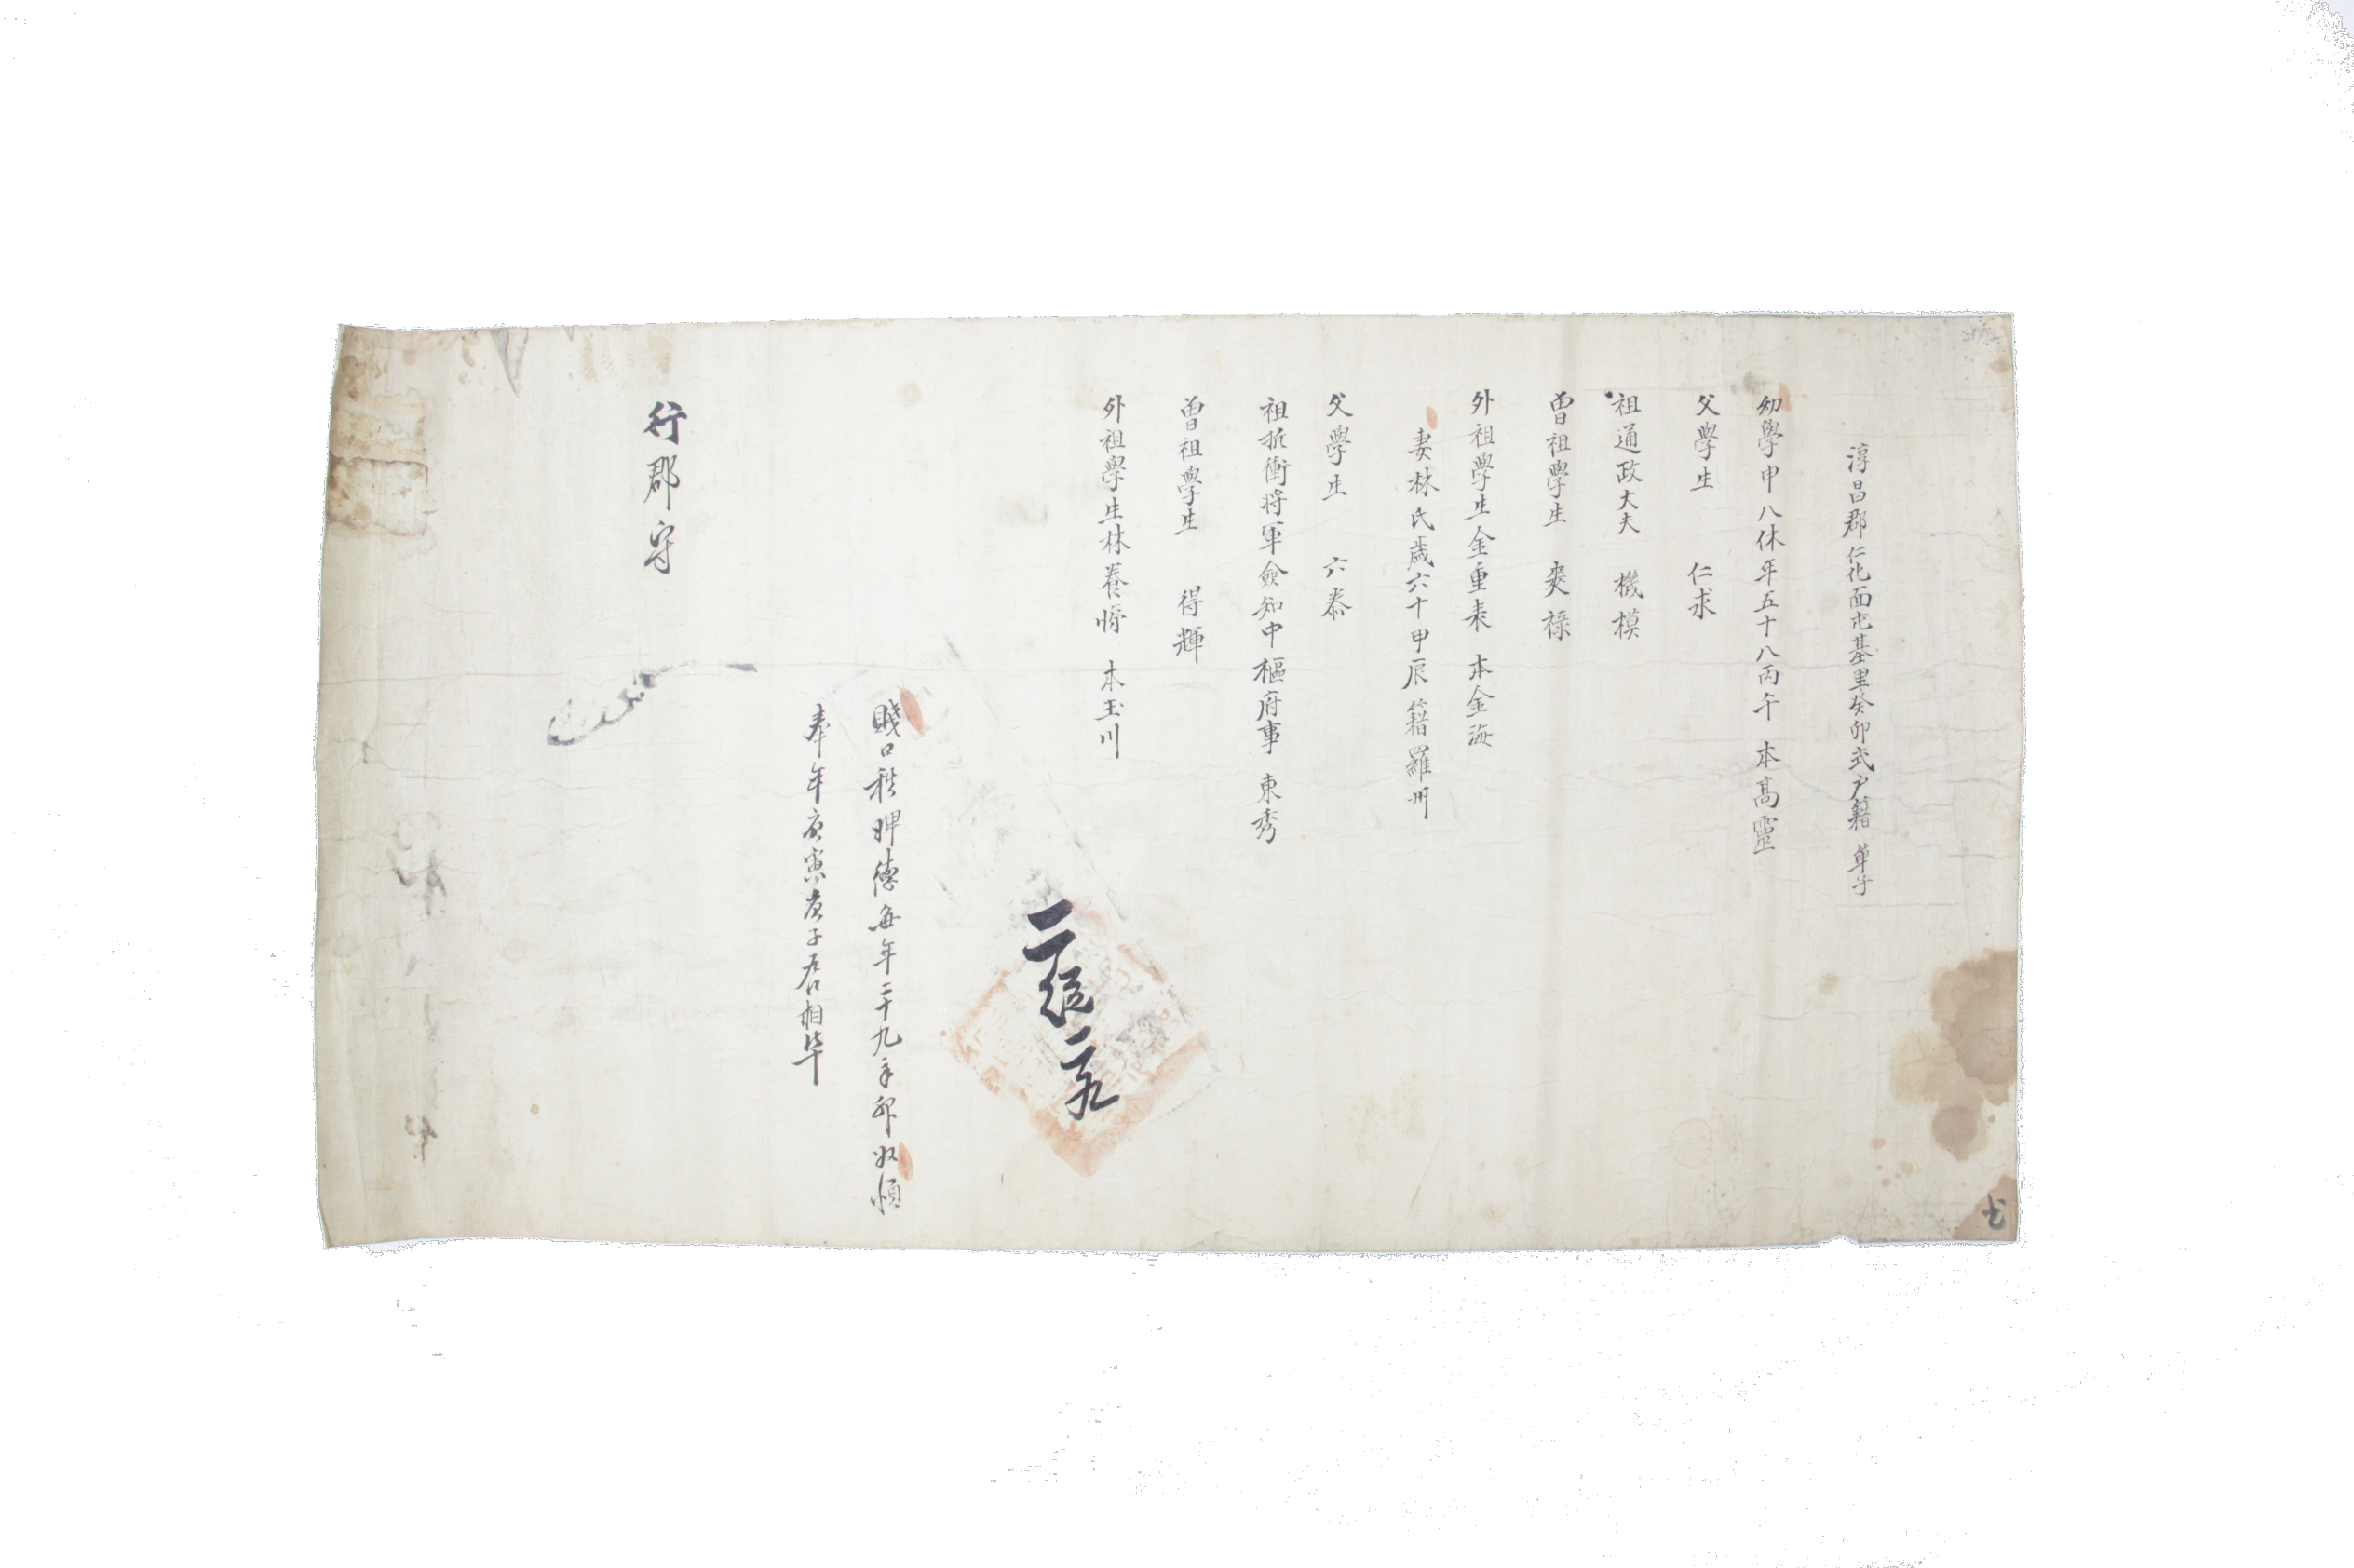 淳昌郡仁化面屯基里癸卯式戶籍單子
幼學申八休年五十八丙午 本高靈
父學生 仁求
祖通政大夫 機模
曾祖學生 爽祿
外祖學生金重 本金海
妻林氏歲六十甲辰籍羅州
父學生 六泰
祖折衝將軍僉知中樞府事 東秀
曾祖學生 得輝
外祖學生林養 本玉川
二統二
賤口秩婢德每年二十九辛卯奴
奉年庚寅庚子居相準
行郡守